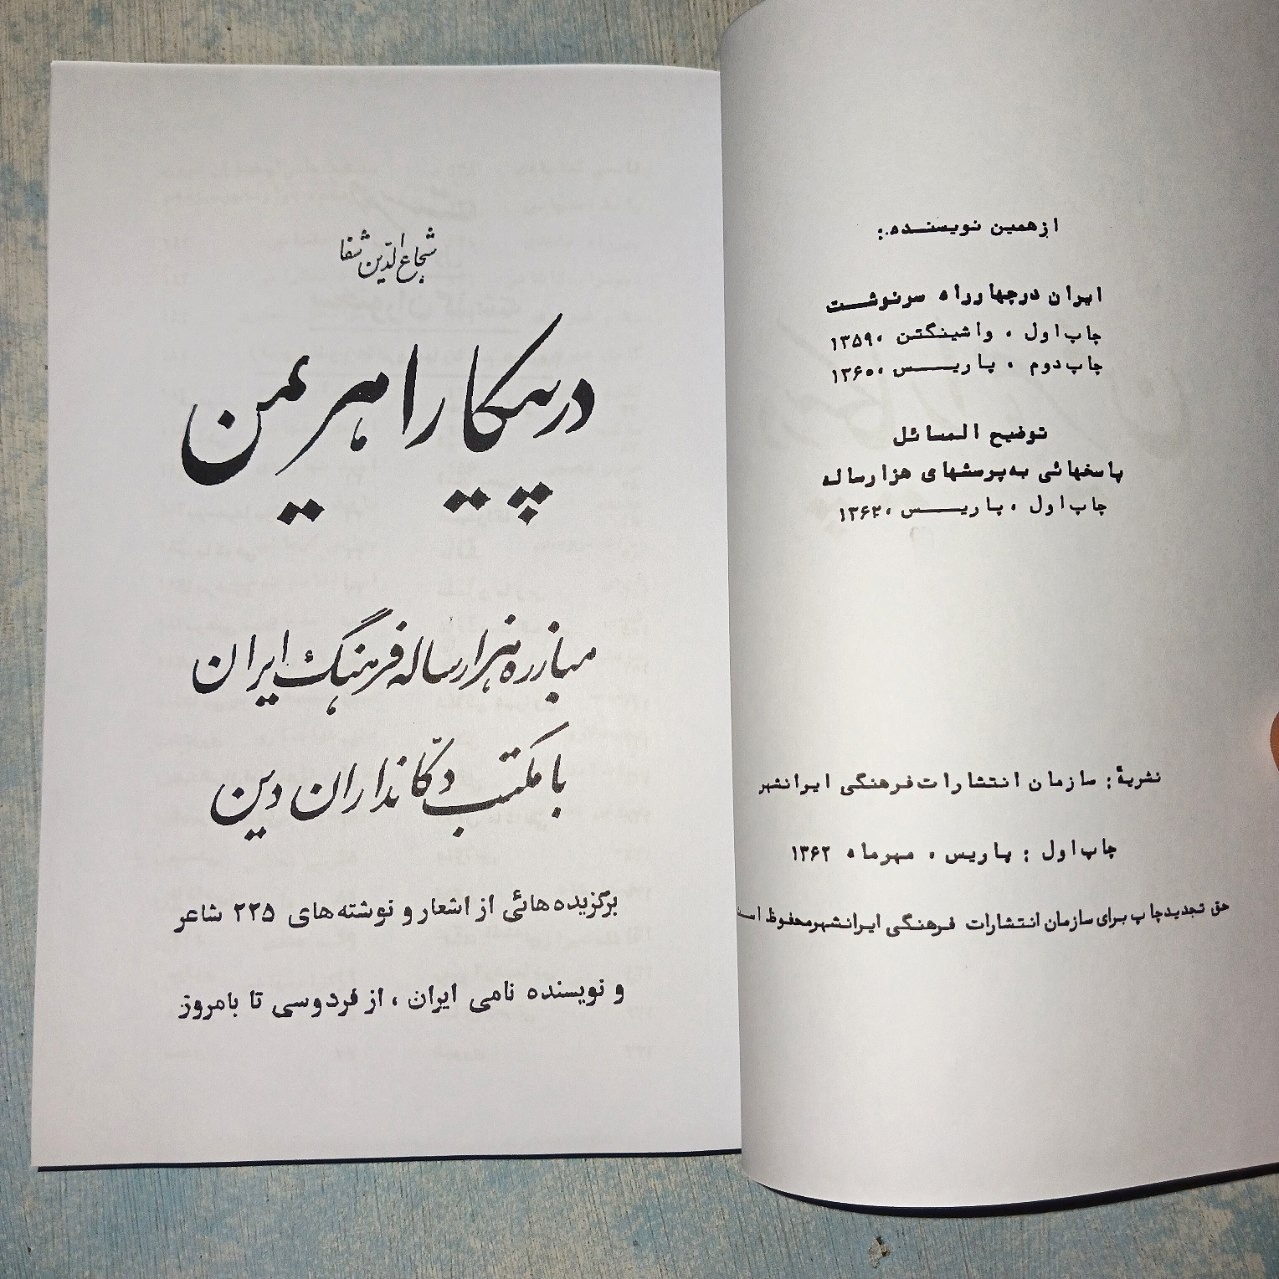 از همین نویسنده:
ایران در چهارراه سرنوشت
چاپ اول ، واشینگتن ، ۱۳۵۹
چاپ دوم ، پاریس ، ۱۳۶۰
توضیح المسائل
پاسخهائی به پرسشهای هزارساله
چاپ اول ، پاریس ، ۱۳۶۲
نشریهٔ : سازمان انتشارات فرهنگی ایرانشهر
چاپ اول : پاریس ، مهرماه ۱۳۶۲
حق تجدید چاپ برای سازمان انتشارات فرهنگی ایرانشهر محفوظ است
شجاع الدّین شفا
در پیکار اهریمن
مبارزه هزار ساله فرهنگ ایران
با مکتب دکّانداران دین
برگزیده هائی از اشعار و نوشته های ۲۲۵ شاعر
و نویسنده نامی ایران ، از فردوسی تا بامروز